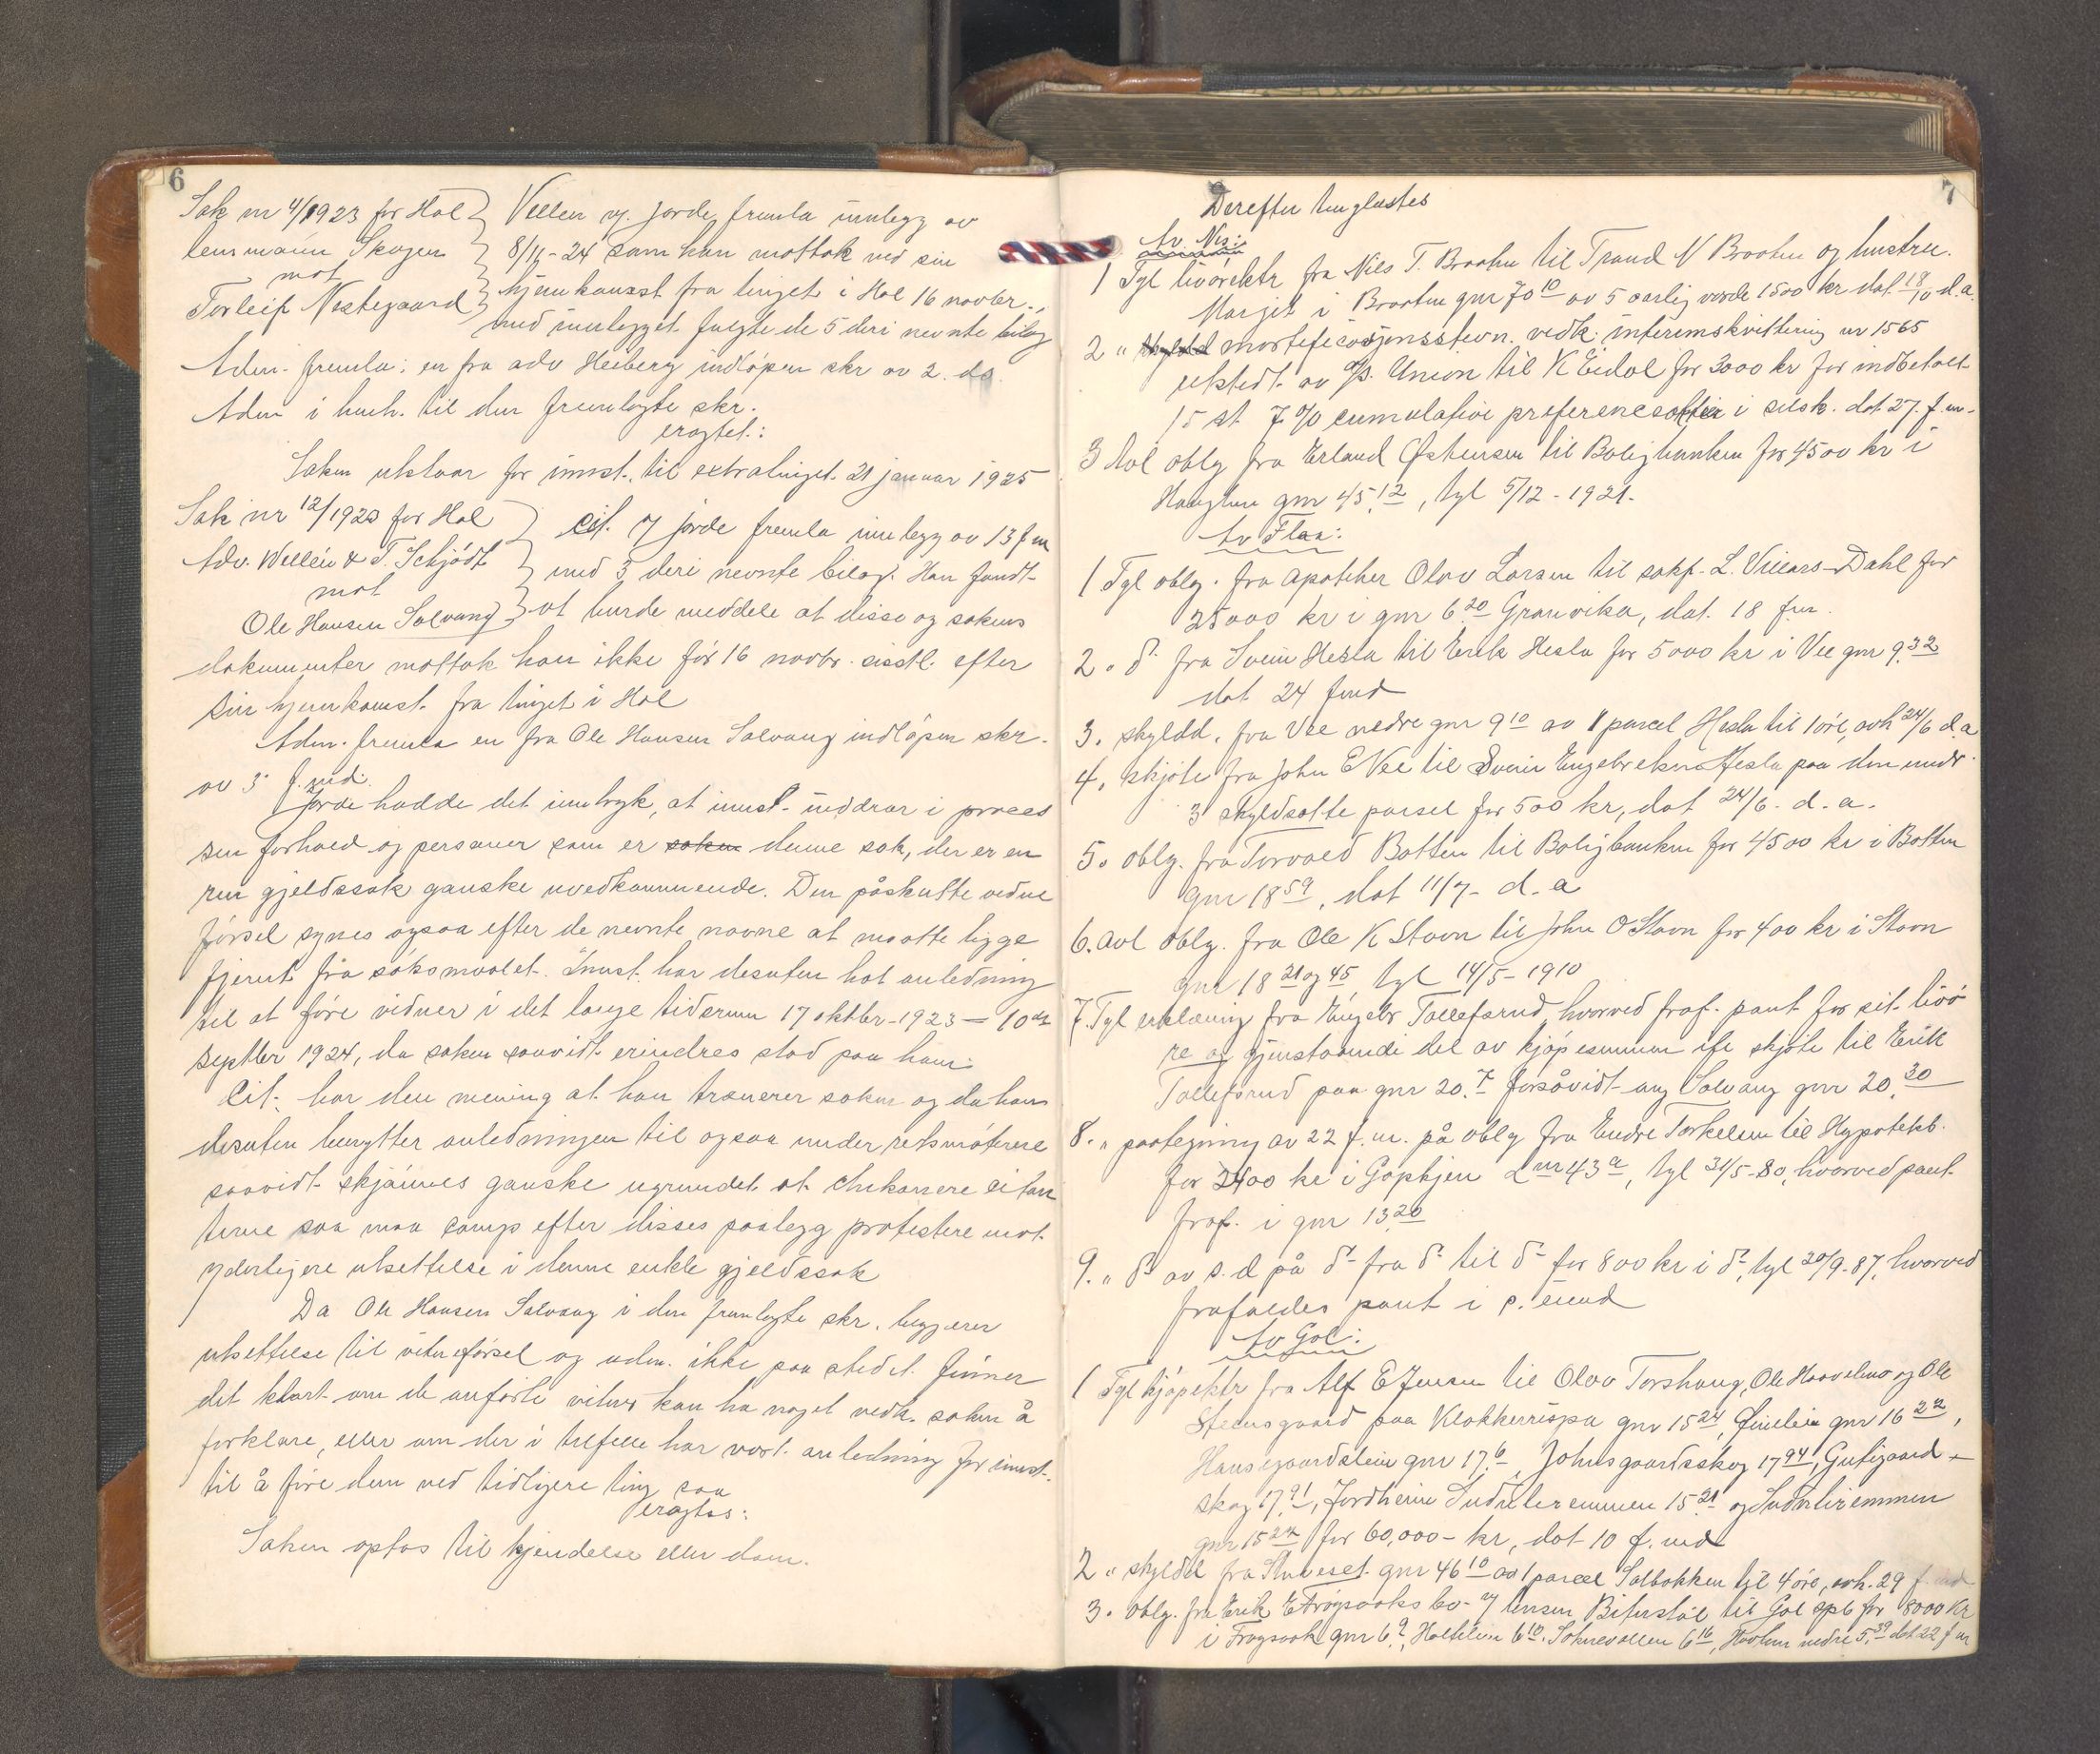 6
Sak nr 4/1923 for Hol
lensmann Skogen
mot
Torleif Nestegaard
Vellen v. Jorde fremla innlegg av
8/11-24 som han mottok ved sin
hjemkomst fra tinget i Hol 16 novbr.
med innlegget fulgte de 5 deri nevnte bilag
Adm. fremla: en fra adv Heiberg indløpen skr av 2. ds.
Adm i hech. til den fremlagte skr.
eragtet:
Saken utstaar for innst. til extratinget 21 januar 1925
Sak nr 12/1923 for Hol
Adv. Wellén & T. Schjødt
mot
Ole Hansen Solvang
Cit. v jorde fremla innlegg av 13 f m
med 3 deri nevnte bilag. Han fandt
at burde meddele at disse og sakens
dokumenter mottok han ikke før 16 novbr. sisstl. efter
sin hjemkomst fra tinget i Hol
Adm. fremla en fra Ole Hansen Solvang indløpen skr.
av 3 f. md.
Jorde hadde det inntryk, at innst. inddrar i proces
sen forhold og personer som er saken denne sak, der er en
ren gjeldssak ganske uvedkommende. Den påskutte vidne
førsel synes ogsaa efter de nevnte navne at maatte ligge
fjernt fra søksmaalet. Innst. har desuten hat anledning
til at føre vidner i det lange tidsrum 17 oktbr-1923 – 10de
septbr 1924, da saken saavidt erindres stod paa ham.
Cit. har den mening at han trænerer saken og da han
desuten benytter anledningen til ogsaa under retsmøterne
saavidt skjønnes ganske ugrundet at chikanere citan
terne saa maa comp efter disses paalegg protestere mot
yderligere utsettelse i denne enkle gjeldssak
Da Ole Hansen Solvang i den fremlagte skr. begjærer
utsettelse til vitneførsel og adm. ikke paa stedet finner
det klart om de anførte vitner kan ha noget vedk. saken å
forklare, eller om der i tilfelle har vært anledning for innst.
til å føre dem ved tidligere ting saa
eragtes:
Saken optas til kjendelse eller dom.
7
Derefter tinglæstes
Av Nes:
1 Tgl livørektr fra Nils T. Braaten til Trond N Braaten og hustru
Marjet i Braaten gnr 70 10 av 5 aarlig værde 1500 kr dat. 18/10 d.a.
2 " mortifica​sjonsstevn. vedk. interimskvittering nr 1565
utstedt av A/S. Union til K Eidal for 3000 kr for indbetalt
15 st 7 % cumulative preferenceaktier i selsk. dat 27. f.m.
3 Avl oblg fra Erland Østensen til Boligbanken for 4500 kr i
Haugtun gnr 45.12, tgl 5/12-1921.
Av Flaa:
1 Tgl oblg. fra apoteker Olav Larsen til sakf. L. Villars-Dahl for
25000 kr i gnr 6.20 Granvika, dat. 18 f.m.
2 " d° fra Svein Hesla til Erik Hesla for 5000 kr i Vee gnr 9.32
dat 24 f md
3. skyldd. fra Vee nedre gnr 9 10 av 1 parcel Hesla til 1 øre, avh 24/6 d.a
4. skjøte fra John E Vee til Svein Engebreksen Hesla paa den under
3 skyldsatte parsel for 500 kr, dat 24/6. d.a.
5. oblg. fra Torvald Botten til Boligbanken for 4500 kr i Botten
gnr 18 59, dat 11/7- d.a
6. Avl oblg. fra Ole K Stavn til John O Stavn for 400 kr i Stavn
gnr 18 21 og 45 tgl 14/5-1910
7. Tgl erklæring fra Engebr Tollefsrud hvorved fraf. pant for sit livø
re og gjenstaaende del av kjøpesummen ifl skjøte til Erik
Tollefsrud paa gnr 20.7 forsåvidt ang Solvang gnr 20.30
8. " paategning av 22 f.m. på oblg fra Endre Torkelsen til Hypotekb.
for 2400 kr i Goplhjen Lnr 43a, tgl 31/5-80, hvorved pant
fraf. i gnr 13.20
9. " d° av s.d på d° fra d° til d° for 800 kr i d°, tgl 20/9-87, hvorved
frafaldes pant i s. eiend
Av Gol:
1 Tgl kjøpektr fra Alf E Jensen til Olav Torshaug, Ole Haavelmo og Ole
Stensgaard paa Klokkerrispa gnr 15 24, gnr 16 22,
Hansegaardslein gnr 17.6, Johnsgaardsskog 17 94, Gutigaard-
skog 17.91, Jordheim Sudrelieremmen 15.21 og Sudrelieremmen
gnr 15 22 for 60,000- kr, dat 10 f. md
2 " skyldd fra gnr 46 10 av 1 parcel Solbakken tgl 4 øre, avh. 29 f. md.
3. oblg. fra Erik E Frøysaaks bo. v ensen Bjerstøl til Gol spb for 8000 kr
i Frøysaak gnr 6 9, Haltelien 6 10, 6 16, nedre 5.39 dat 22 f m